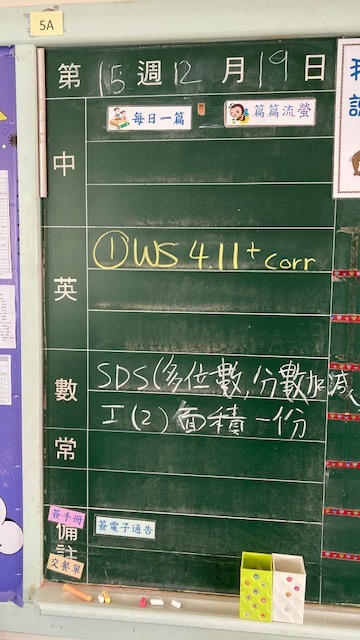 5A
第 15 週 12 月 19 日
每日一篇 篇篇流螢
中
① WS 4.11 + corr
英
SDS (多位數,分數加減、
數
工(2) 面積一份
常
簽手冊
簽電子通告
備註
交餐單